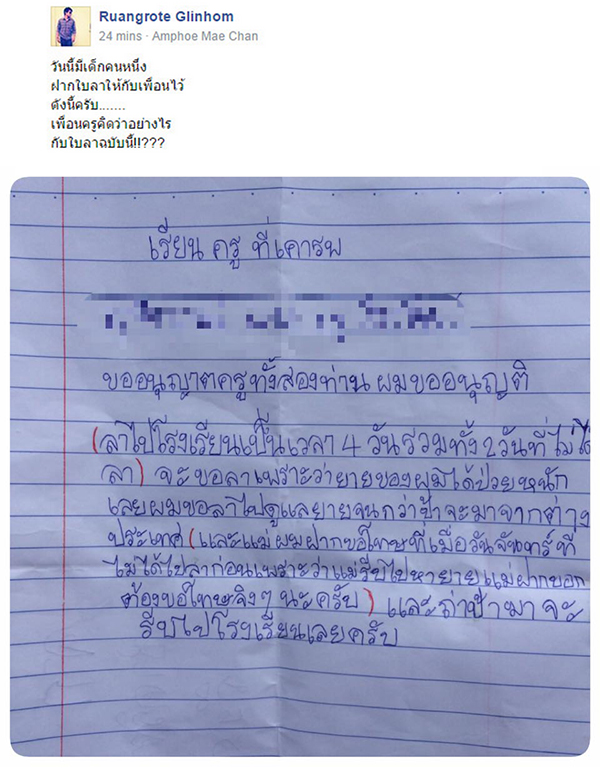 Ruangrote Glinhom
24 mins · Amphoe Mae Chan
วันนี้มีเด็กคนหนึ่ง
ฝากใบลาให้กับเพื่อนไว้
ดังนี้ครับ.......
เพื่อนครูคิดว่าอย่างไร
กับใบลาฉบับนี้!!???
เรียน ครู ที่เคารพ
ขออนุญาตครูทั้งสองท่าน ผมขออนุญติ
(ลาไปโรงเรียนเป็นเวลา 4 วันรวมทั้ง 2 วันที่ไม่ได้
ลา) จะขอลาเพราะว่ายายของผมได้ป่วยหนัก
เลยผมขอลาไปดูแลยายจนกว่าป้าจะมาจากต่าง
ประเทศ (และแม่ผมฝากขอโทษที่เมื่อวันจันทร์ที่
ไม่ได้ไปลาก่อนเพราะว่าแม่รีบไปหายายแม่ฝากบอก
ต้องขอโทษจิงๆ นะครับ) และถ่าป้ามาจะ
รีบไปโรงเรียนเลยครับ